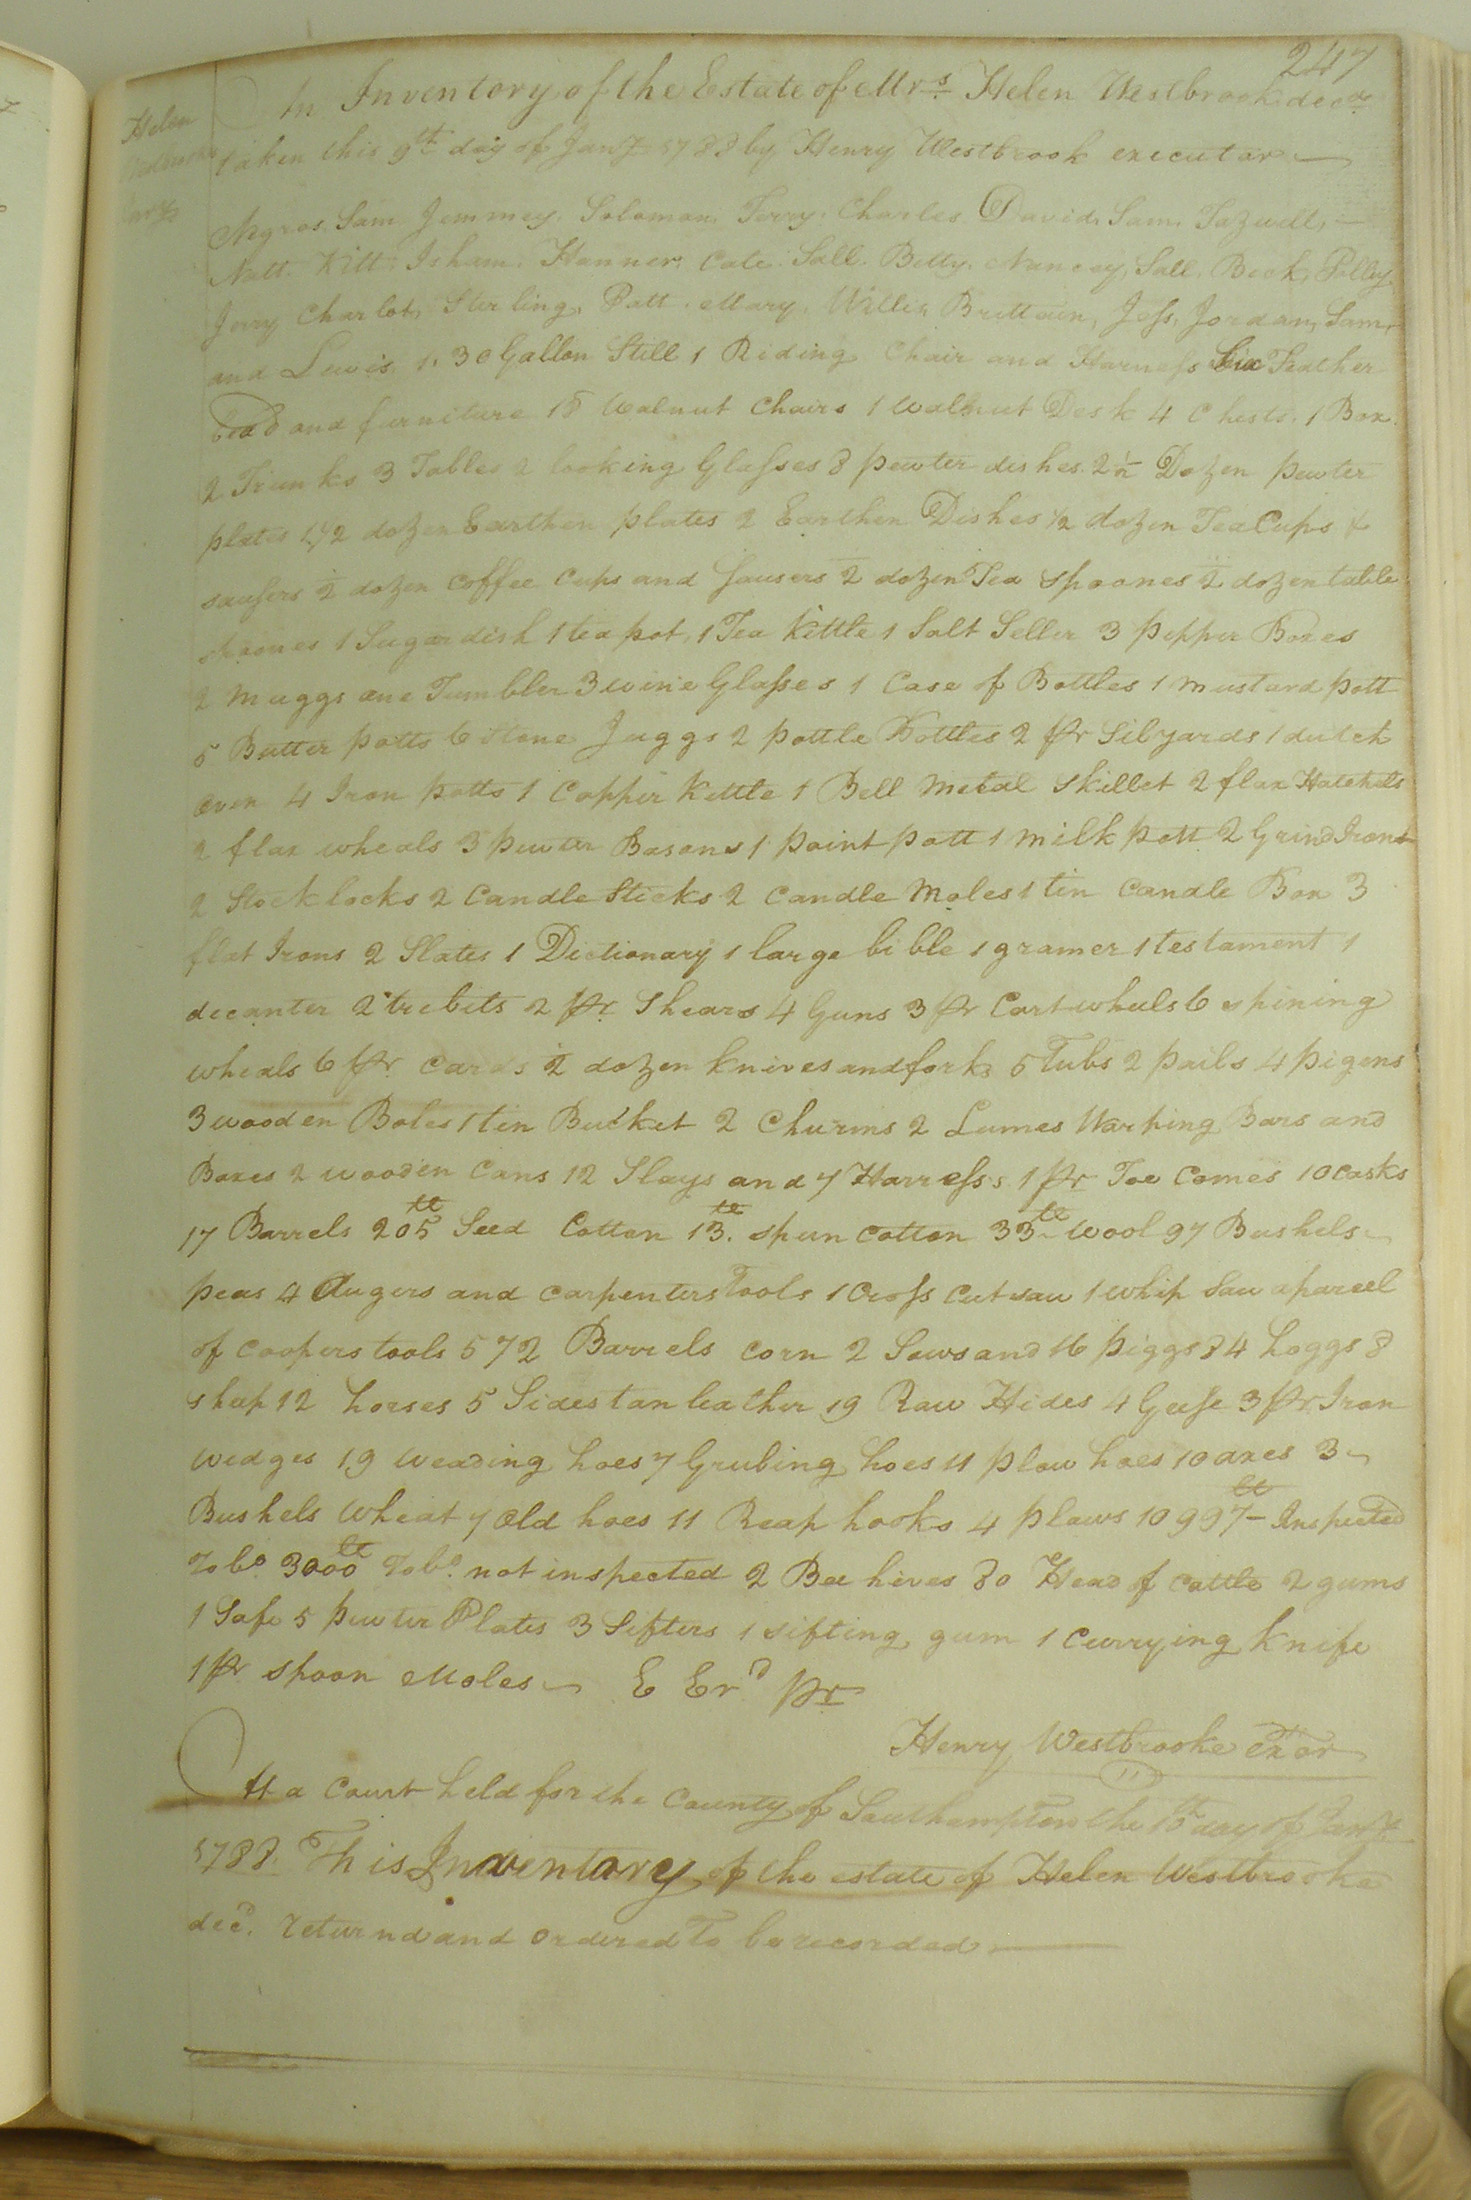 247
Helen
Westbrooke
Invy
An Inventory of the Estate of Mrs. Helen Westbrook decd
taken this 9th day of Jany 1788 by Henry Westbrook executor
Negros, Sam, Jemmey, Solomon, Terry, Charles, David, Sam, Tazwell,
Natt, Kitt, Isham, Hanner, Cate, Sall, Betty, Nancay, Sall, Beck, Polley
Jerry Charlot, Sterling, Patt, Mary, Willis, Brittain, Jess, Jordan, Sam,
and Lewis, 1. 30 Gallon Still 1 Riding Chair and Harness Six Feather
bead and furniture 18 Walnut Chairs 1 walnut Desk 4 Chests, 1 Box
2 Trunks 3 Tables 2 looking Glasses 8 pewter dishes 2½ Dozen pewter
plates 1½ dozen Earthen plates 2 Earthen Dishes ½ dozen Tea Cups &
sausers ½ dozen Coffee Cups and Sausers ½ dozen Tea Spoones ½ dozen table
spoones 1 Sugar dish 1 tea pot, 1 Tea Kettle 1 Salt Seller 3 pepper Boxes
2 Muggs one Tumbller 3 wine Glasses 1 Case of Bottles 1 mustard pott
5 Butter potts 6 Stone Juggs 2 pottle Bottles 2 pr Silyards 1 dutch
oven 4 Iron potts 1 Copper Kettle 1 Bell Metal Skillet 2 flax Hatchels
2 flax wheals 3 pewter Basons 1 paint pott 1 milk pott 2 Grind Irons
2 Stock locks 2 Candle Sticks 2 Candle Moles 1 tin Candle Box 3
flat Irons 2 Slates 1 Dictionary 1 large bible 1 gramer 1 testament 1
decanter 2 trebits 2 pr. Shears 4 Guns 3 pr Cart wheels 6 spining
wheals 6 pr. cards ½ dozen knives and forks 5 Tubs 2 pails 4 pigens
3 wooden Boles 1 tin Bucket 2 Churms 2 Lumes Warping Bars and
Boxes 2 wooden Cans 12 Slays and 7 Harness 1 pr Toe Comes 10 casks
17 Barrels 205 lb Seed Cotton 13 lb. spun cotton 33 lb wool 97 Bushels
peas 4 Augers and carpenters Tools 1 Cross Cut saw 1 whip Saw a parcel
of Coopers tools 572 Barrels corn 2 Sows and 16 piggs 84 hoggs 8
sheep 12 horses 5 Sides tan leather 19 Raw Hides 4 Geese 3 pr. Iron
wedges 19 weading hoes 7 Grubing hoes 11 plow hoes 10 axes 3
Bushels Wheat 7 Old hoes 11 Reap hooks 4 plows 10997 lb Inspected
Tobo. 3000 lb Tobo. not inspected 2 Bee hives 80 Head of cattle 2 gums
1 Safe 5 pewter Plates 3 Sifters 1 sifting gum 1 Currying Knife
1 pr spoon Moles E Erd pr
Henry Westbrooke exor
At a Court held for the County of Southampton the 10th day of Jany
1788. This Inventory of the estate of Helen Westbrooke
decd. returnd and ordered To be recorded